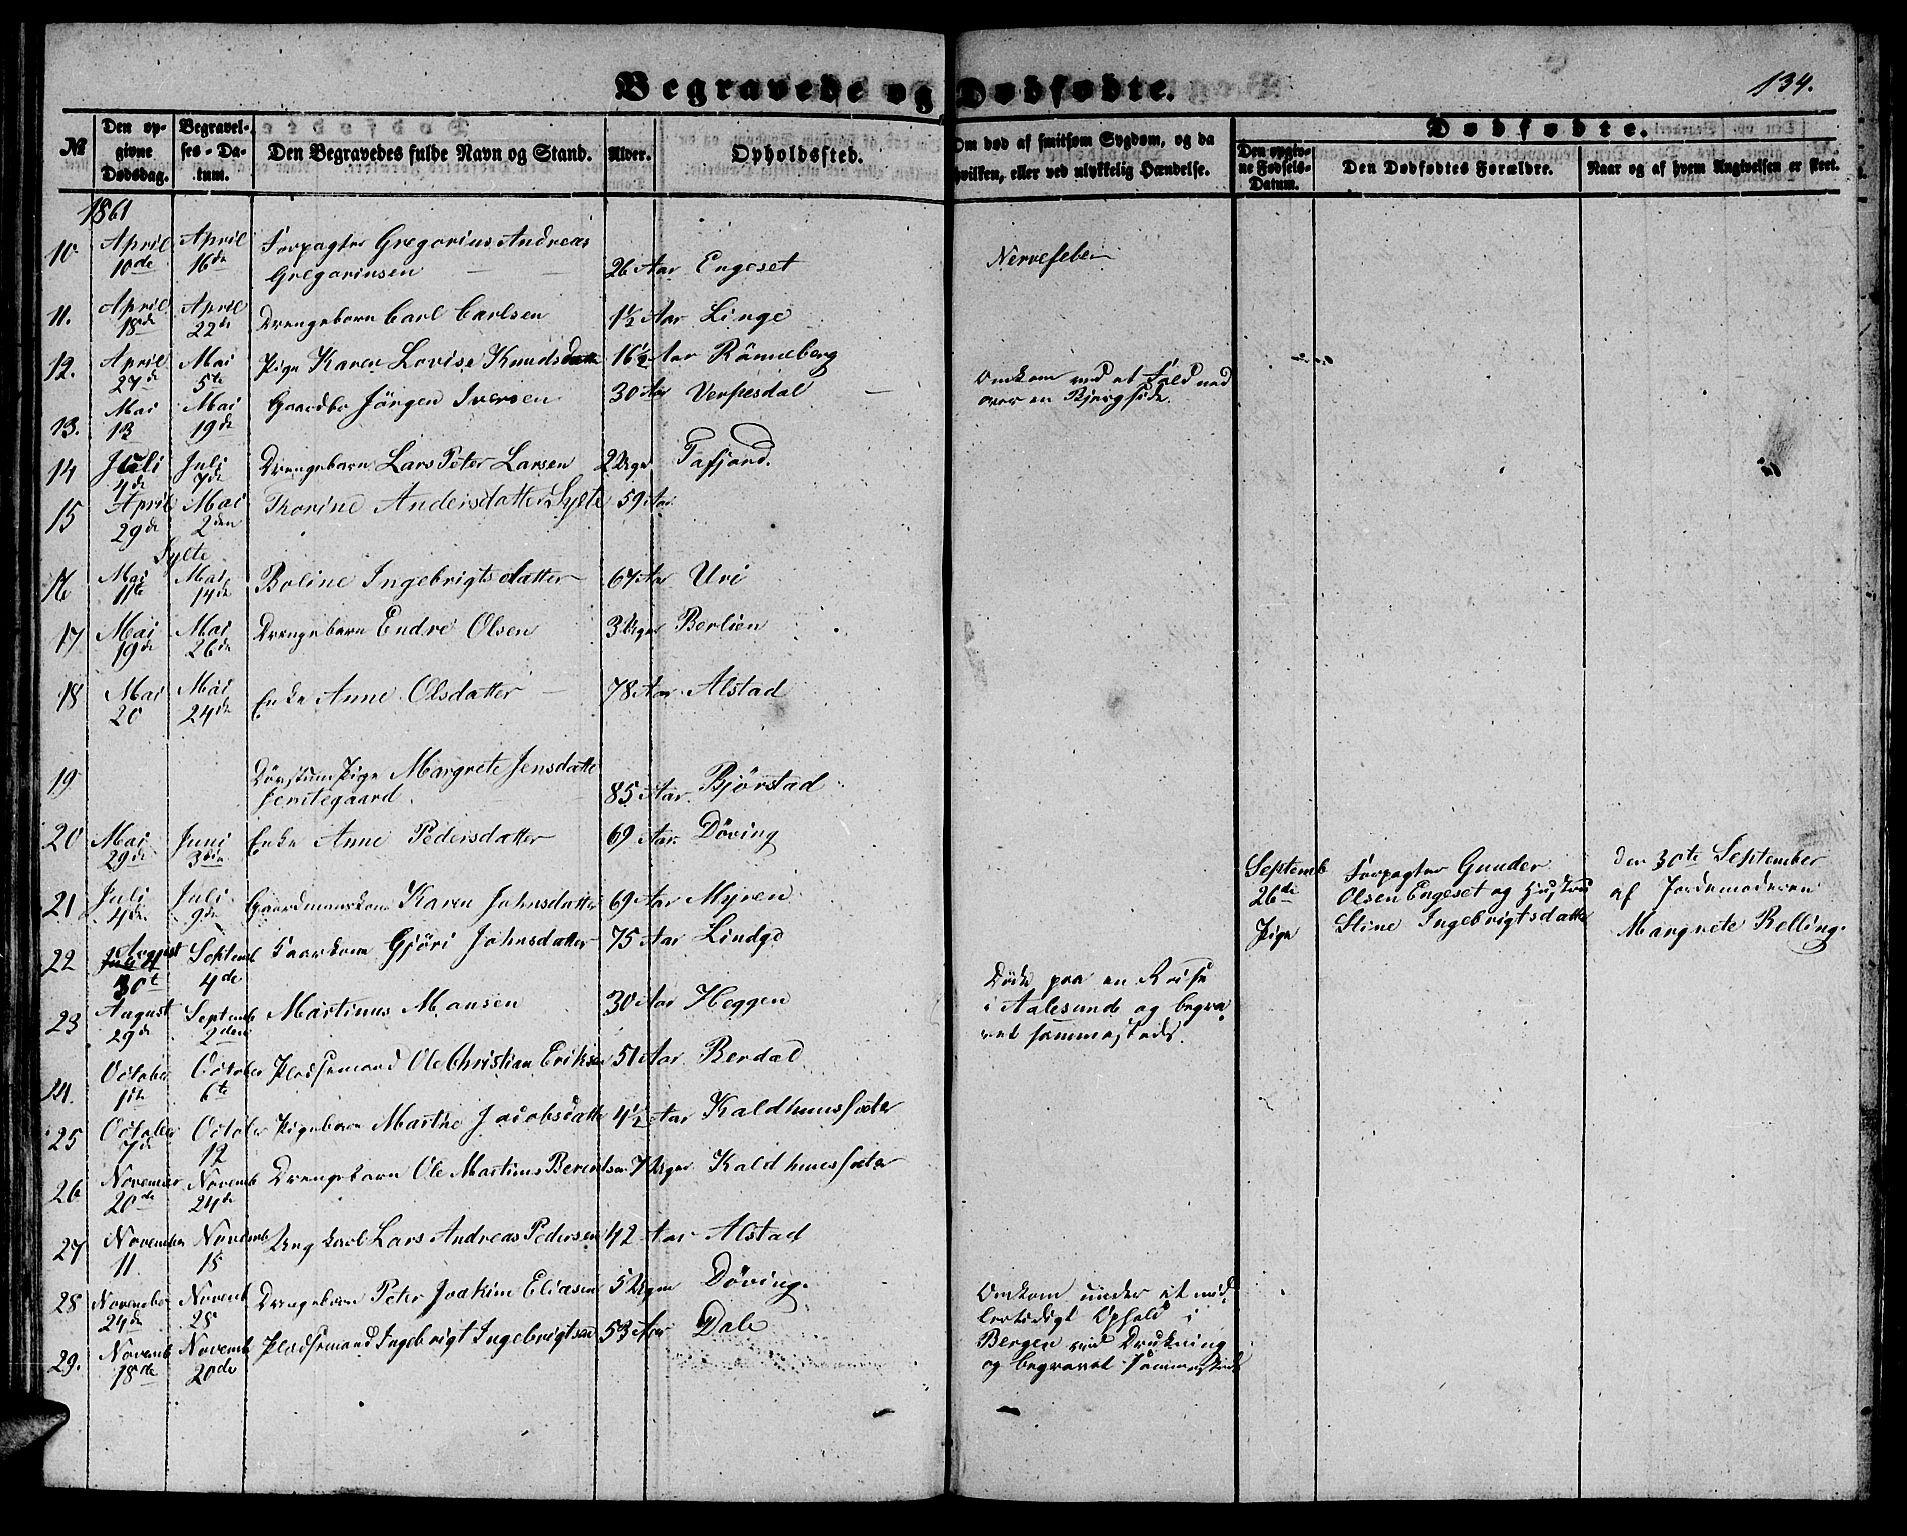 Begravede og Dødfødte.
134.
№
Den opgivne Dødsdag.
Begravelses-Datum.
Den Begravedes fulde Navn og Stand.
Alder.
Opholdssted.
Om død af smitsom Sygdom, og da hvilken, eller ved ulykkelig Hændelse.
Dødfødte.
Den opgivne Fødsels-Datum.
Den Dødfødtes Forældre.
Naar og af hvem Angivelsen er skeet.
1861
10 April 10de April 16de Forpagter Gregorius Andreas Gregoriusen 26 Aar Engeset Nervefeber
11. April 18de April 22de Drengebarn Carl Carlsen 1½ Aar Linge
12. April 27de Mai 5te Pige Karen Lovise Knudsdatter 16½ Aar Rönneberg
13. Mai 12 Mai 19de Gaardbr Jörgen Iversen 30 Aar Verpesdal Omkom ved at fald ned over en Bjergside.
14 Juli 4de Juli 7de Drengebarn Lars Peter Larsen 2 Uger Tafjord.
15 April 29de Mai 2den Thorine Andersdatter Sylte 59 Aar
Sylte
16 Mai 11te Mai 14de Boline Ingebrigtsdatter 67 Aar Uri
17 Mai 19de Mai 26de Drengebarn Endre Olsen 3 Uger Berlien
18 Mai 20 Mai 24de Enke Anne Olsdatter 78 Aar Alstad
19 Døvstum Pige Margrete Jensdatter 85 Aar Bjørstad
20 Mai 29de Juni 3die Enke Anne Pedersdatter 69 Aar. Döving
21 Juli 4de Juli 9de Gaardmandskone Karen Johnsdatter 69 Aar Myren
22 August 30te Septemb 4de Kaarkone Gjöri Johnsdatter 75 Aar Lindge
September 26de Pige
Forpagter Gunder Olsen Engeset og Hustru Stine Ingebrigtsdatter
den 30te September af Jordemoderen Margrete Relling.
23 August 29de Septemb 2den Martinus Monsen 30 Aar Heggen Døde paa en Reise i Aalesund og begravet sammesteds.
24. October 1ste October 6te Pladsemand Ole Christian Eriksen 51 Aar Rerdal
25 October 7de October 12 Pigebarn Marthe Jacobsdatter 4½ Aar Kaldhussæter
26 November 20de Novemb 24de Drengebarn Ole Martinus Berentsen 7 Uger Kaldhussæter
27 November 11 Novemb 15 Ungkarl Lars Andreas Pedersen 42 Aar Alstad
28 November 24de Novemb 28 Drengebarn Peter Joakim Eliasen 5 Uger Döving.
29. Novemb 18de Novemb 20de Pladsemand Ingebrigt Ingebrigtsen 53 Aar Dale Omkom under et midlertidigt Ophold i Bergen ved Drukning og begravet sammesteds